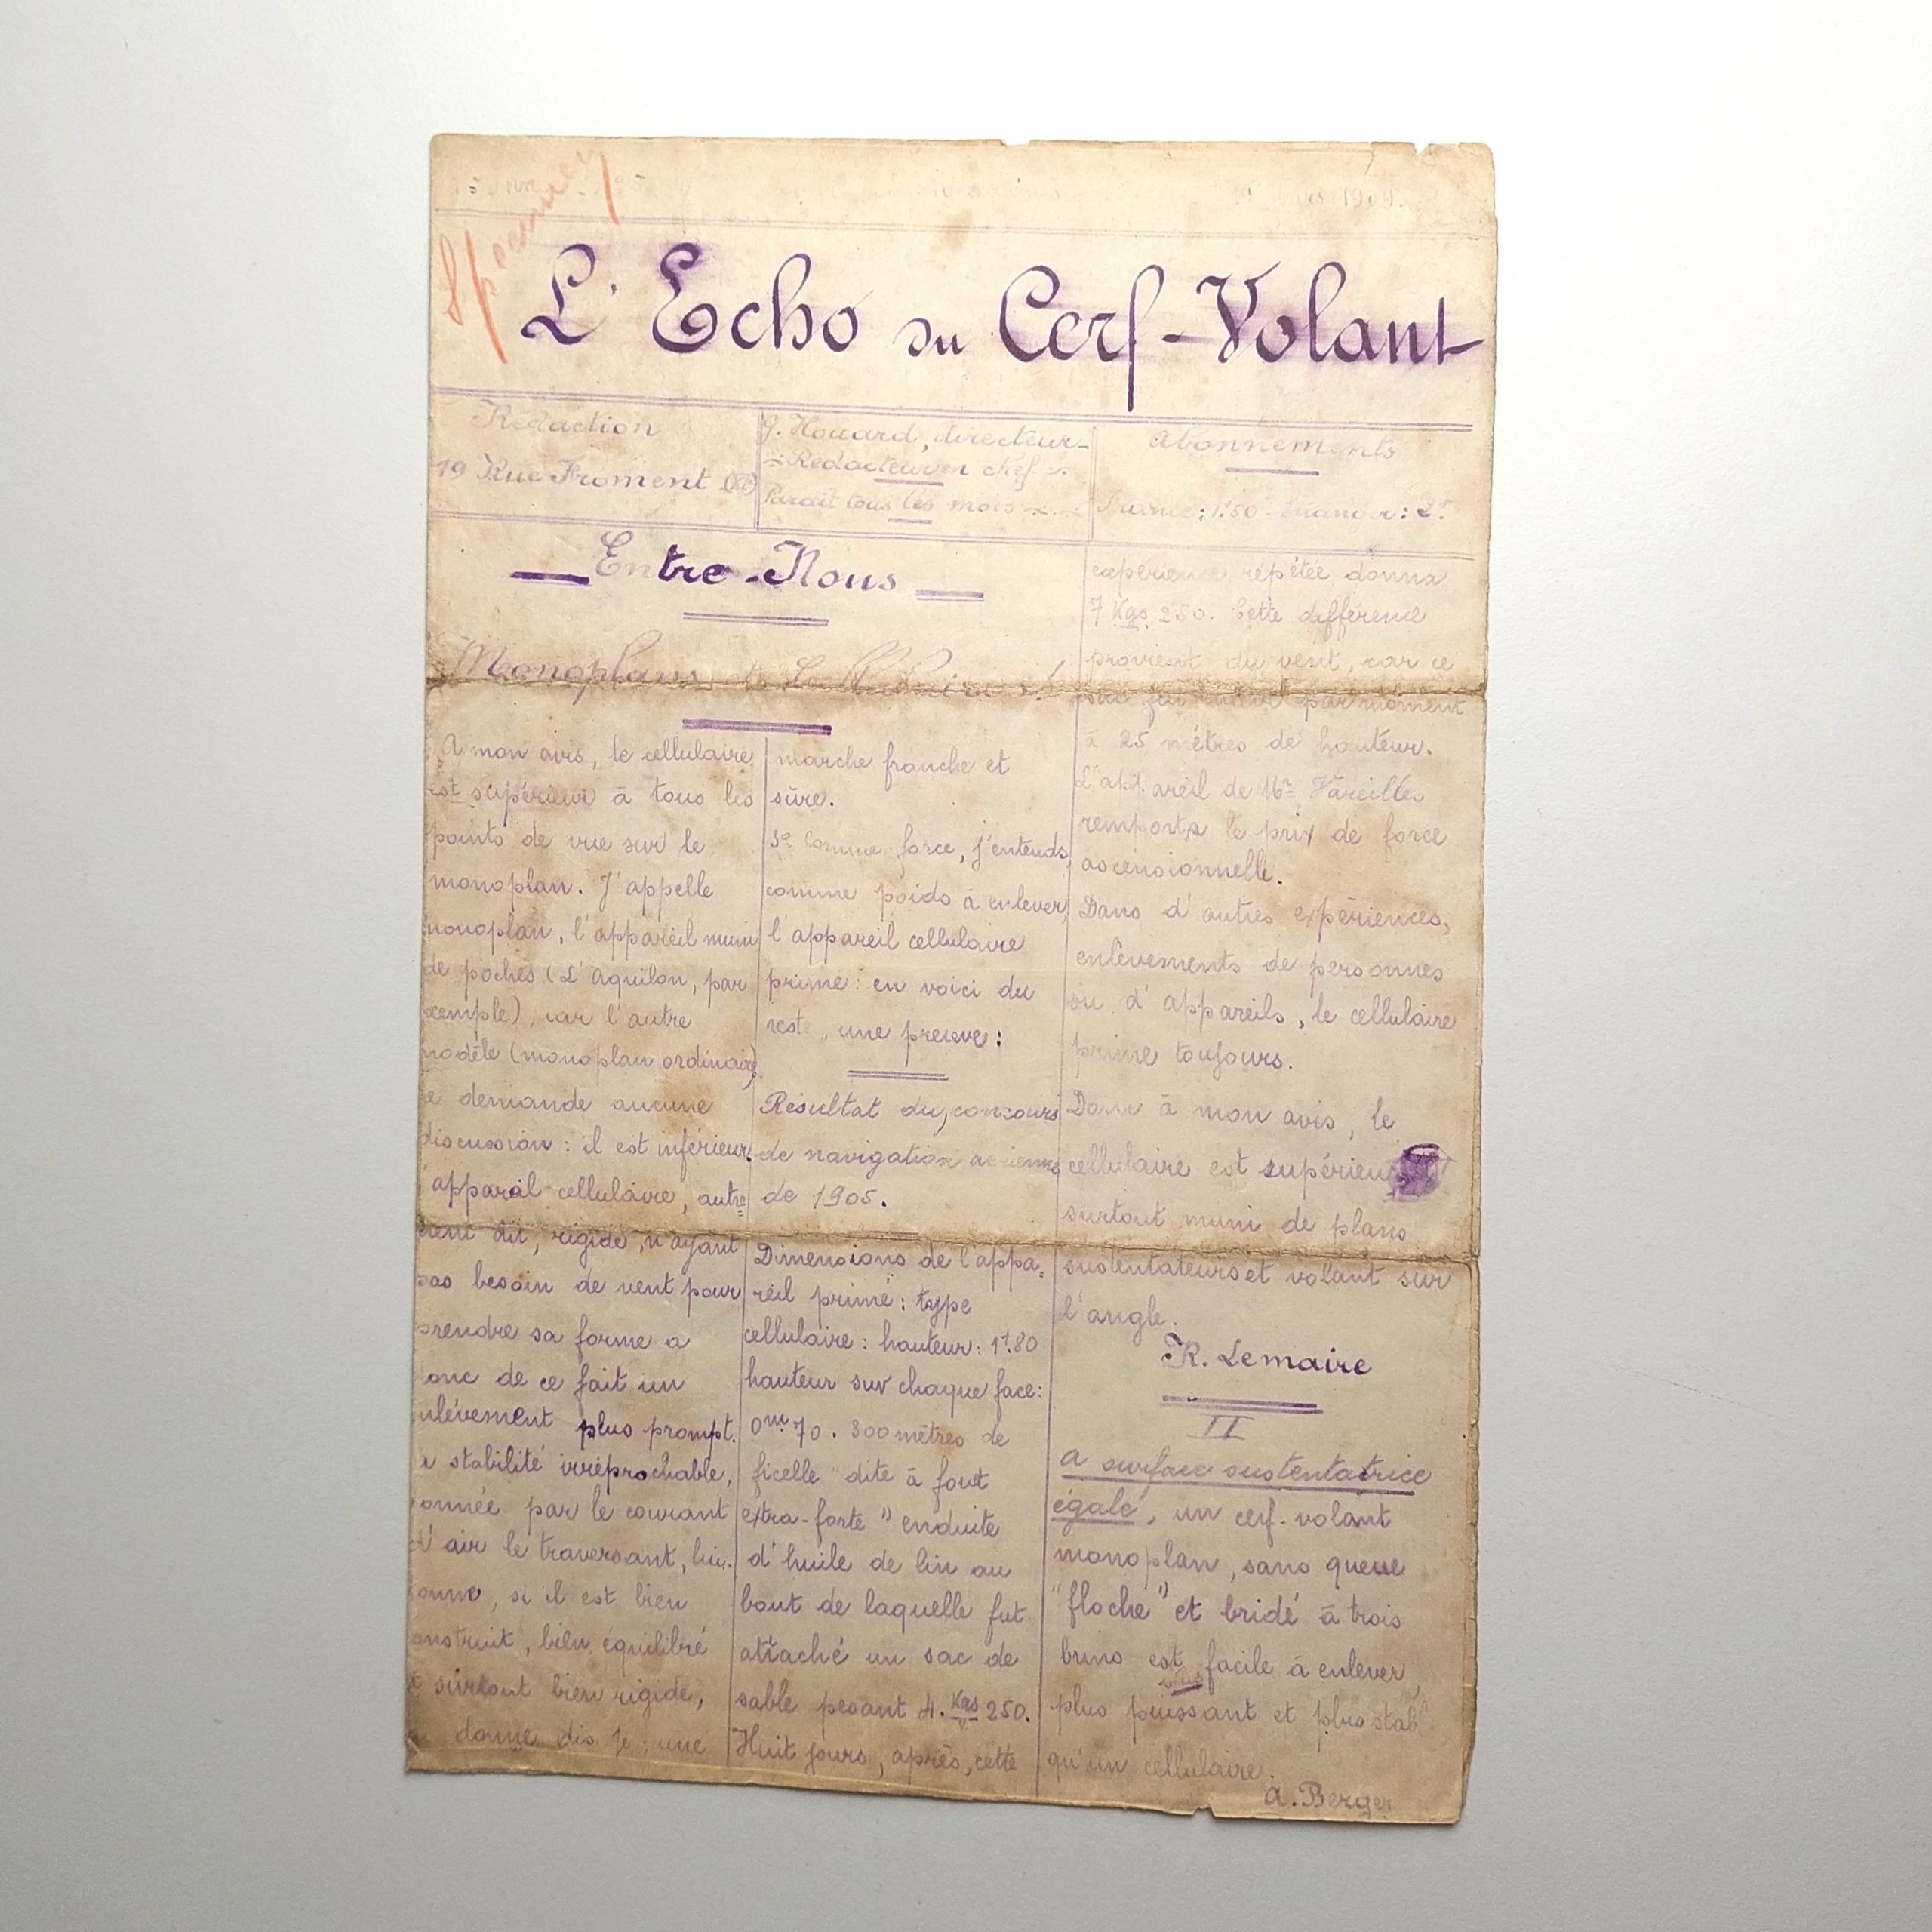 Specimen
1909.
L'Echo du Cerf-Volant
Rédaction
19 Rue Froment
G. Houard, directeur-
Rédacteur en chef
Parait tous les mois
Abonnements
France: 1f.50 - Etranger: 2f.
Entre-Nous
Monoplans et Cellulaires!
A mon avis, le cellulaire
est supérieur à tous les
points de vue sur le
monoplan. J'appelle
monoplan, l'appareil muni
de poches (L'Aquilon, par
exemple), car l'autre
modèle (monoplan ordinaire)
demande aucune
discussion: il est inférieur.
appareil cellulaire, autre=
dit, rigide, n'ayant
pas besoin de vent pour
prendre sa forme a
donc de ce fait un
enlèvement plus prompt.
stabilité irréprochable,
donnée par le courant
d'air le traversant, lui
donne, si il est bien
construit, bien équilibré
et surtout bien rigide,
donne dis je: une
marche franche et
sûre.
3º Comme force, j'entends,
comme poids à enlever
l'appareil cellulaire
prime: en voici du
reste, une preuve:
Résultat du concours
de navigation aérienne
de 1905.
Dimensions de l'appa=
reil primé: type
cellulaire: hauteur: 1m.80
hauteur sur chaque face:
0m70. 300 mètres de
ficelle dite à fouet
extra-forte" enduite
d'huile de lin au
bout de laquelle fut
attaché un sac de
sable pesant 4.Kgs 250.
Huit jours, après, cette
expérience répétée donna
7 Kgs 250. Cette différence
provient du vent, car ce
sac fut enlevé par moment
à 25 mètres de hauteur.
L'appareil de Mr Vareilles
remporta le prix de force
ascensionnelle.
Dans d'autres expériences,
enlèvements de personnes
ou d'appareils, le cellulaire
prime toujours.
Donc à mon avis, le
cellulaire est supérieur
surtout muni de plans
sustentateurs et volant sur
l'angle.
R. Lemaire
II
A surface sustentatrice
égale, un cerf-volant
monoplan, sans queue
"floche" et bridé à trois
brins est plus facile à enlever,
plus puissant et plus stable
qu'un cellulaire.
A. Berger